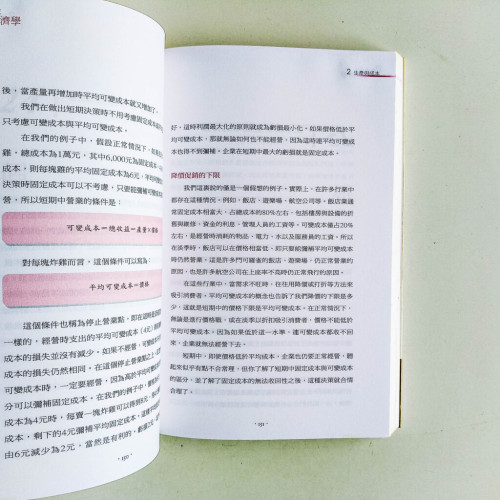 濟學
後，當產量再增加時平均可變成本就又增加了。
我們在做出短期決策時不用考慮固定成本
只考慮可變成本與平均可變成本。
在我們的例子中，假設正常情況下，
雞，總成本為1萬元，其中6,000元為固定成
成本，則每塊雞的平均成本為6元，平均
決策時固定成本可以不考慮，只要能彌補可變
營，所以短期中營業的條件是：
可變成本＝總收益＝產量×價格
對每塊炸雞而言，這個條件可以寫為：
平均可變成本＝價格
這個條件也稱為停止營業點，即在這
一樣的，經營時支出的平均可變成本（4元）
成本的損失並沒有減少。如果不經營，可變成本
成本的損失仍然相同。在這個停止營業點之上
可變成本時，一定要經營，因為高於平均可變
分可以彌補固定成本。在我們的例子中，
成本為4元時，每賣一塊炸雞可以得
成本，剩下的4元彌補平均固定成本，
由6元減少為2元，當然是有利的。
·150·
2 生產與成本
好。這時利潤最大化的原則就成為虧損最小化。如果價格低於平
均可變成本，那就無論如何也不能經營，因為這時連平均可變成
本也得不到彌補，企業在短期中最大的虧損就是固定成本。
降價促銷的下限
我們這裏說的僅是一個假想的例子，實際上，在許多行業中
都存在這種情況。例如，飯店、遊樂場、航空公司等。飯店業通
常固定成本相當大，占總成本的80%左右，包括樓房與設備的折
舊與維修、資金的利息、管理人員的工資等。可變成本僅占20%
左右，是經營時消耗的物品、電力、水以及服務員的工資。所以
在淡季時，飯店可以在價格相當低，即只要能彌補平均可變成本
時仍然營業，這是許多門可羅雀的飯店、遊樂場，仍正常營業的
原因，也是許多航空公司在上座率不高時仍正常飛行的原因。
在這些行業中，當需求不旺時，往往用降價或打折等方法來
吸引消費者。平均可變成本的概念也告訴了我們降價的下限是多
少，這就是短期中的價格不能低於平均可變成本。在正常情況下，
無論是進行價格戰，或在淡季以折扣吸引消費者，價格不能低於
平均可變成本，因為如果低於這一水準，連可變成本都收不回
來，企業就無法經營下去。
短期中，即使價格低於平均成本，企業也仍要正常經營，聽
起來似乎有點不合常理，但你了解了短期中固定成本與可變成本
的區分，並了解了固定成本的無法收回性之後，這種決策就合情
合理了。
·151·